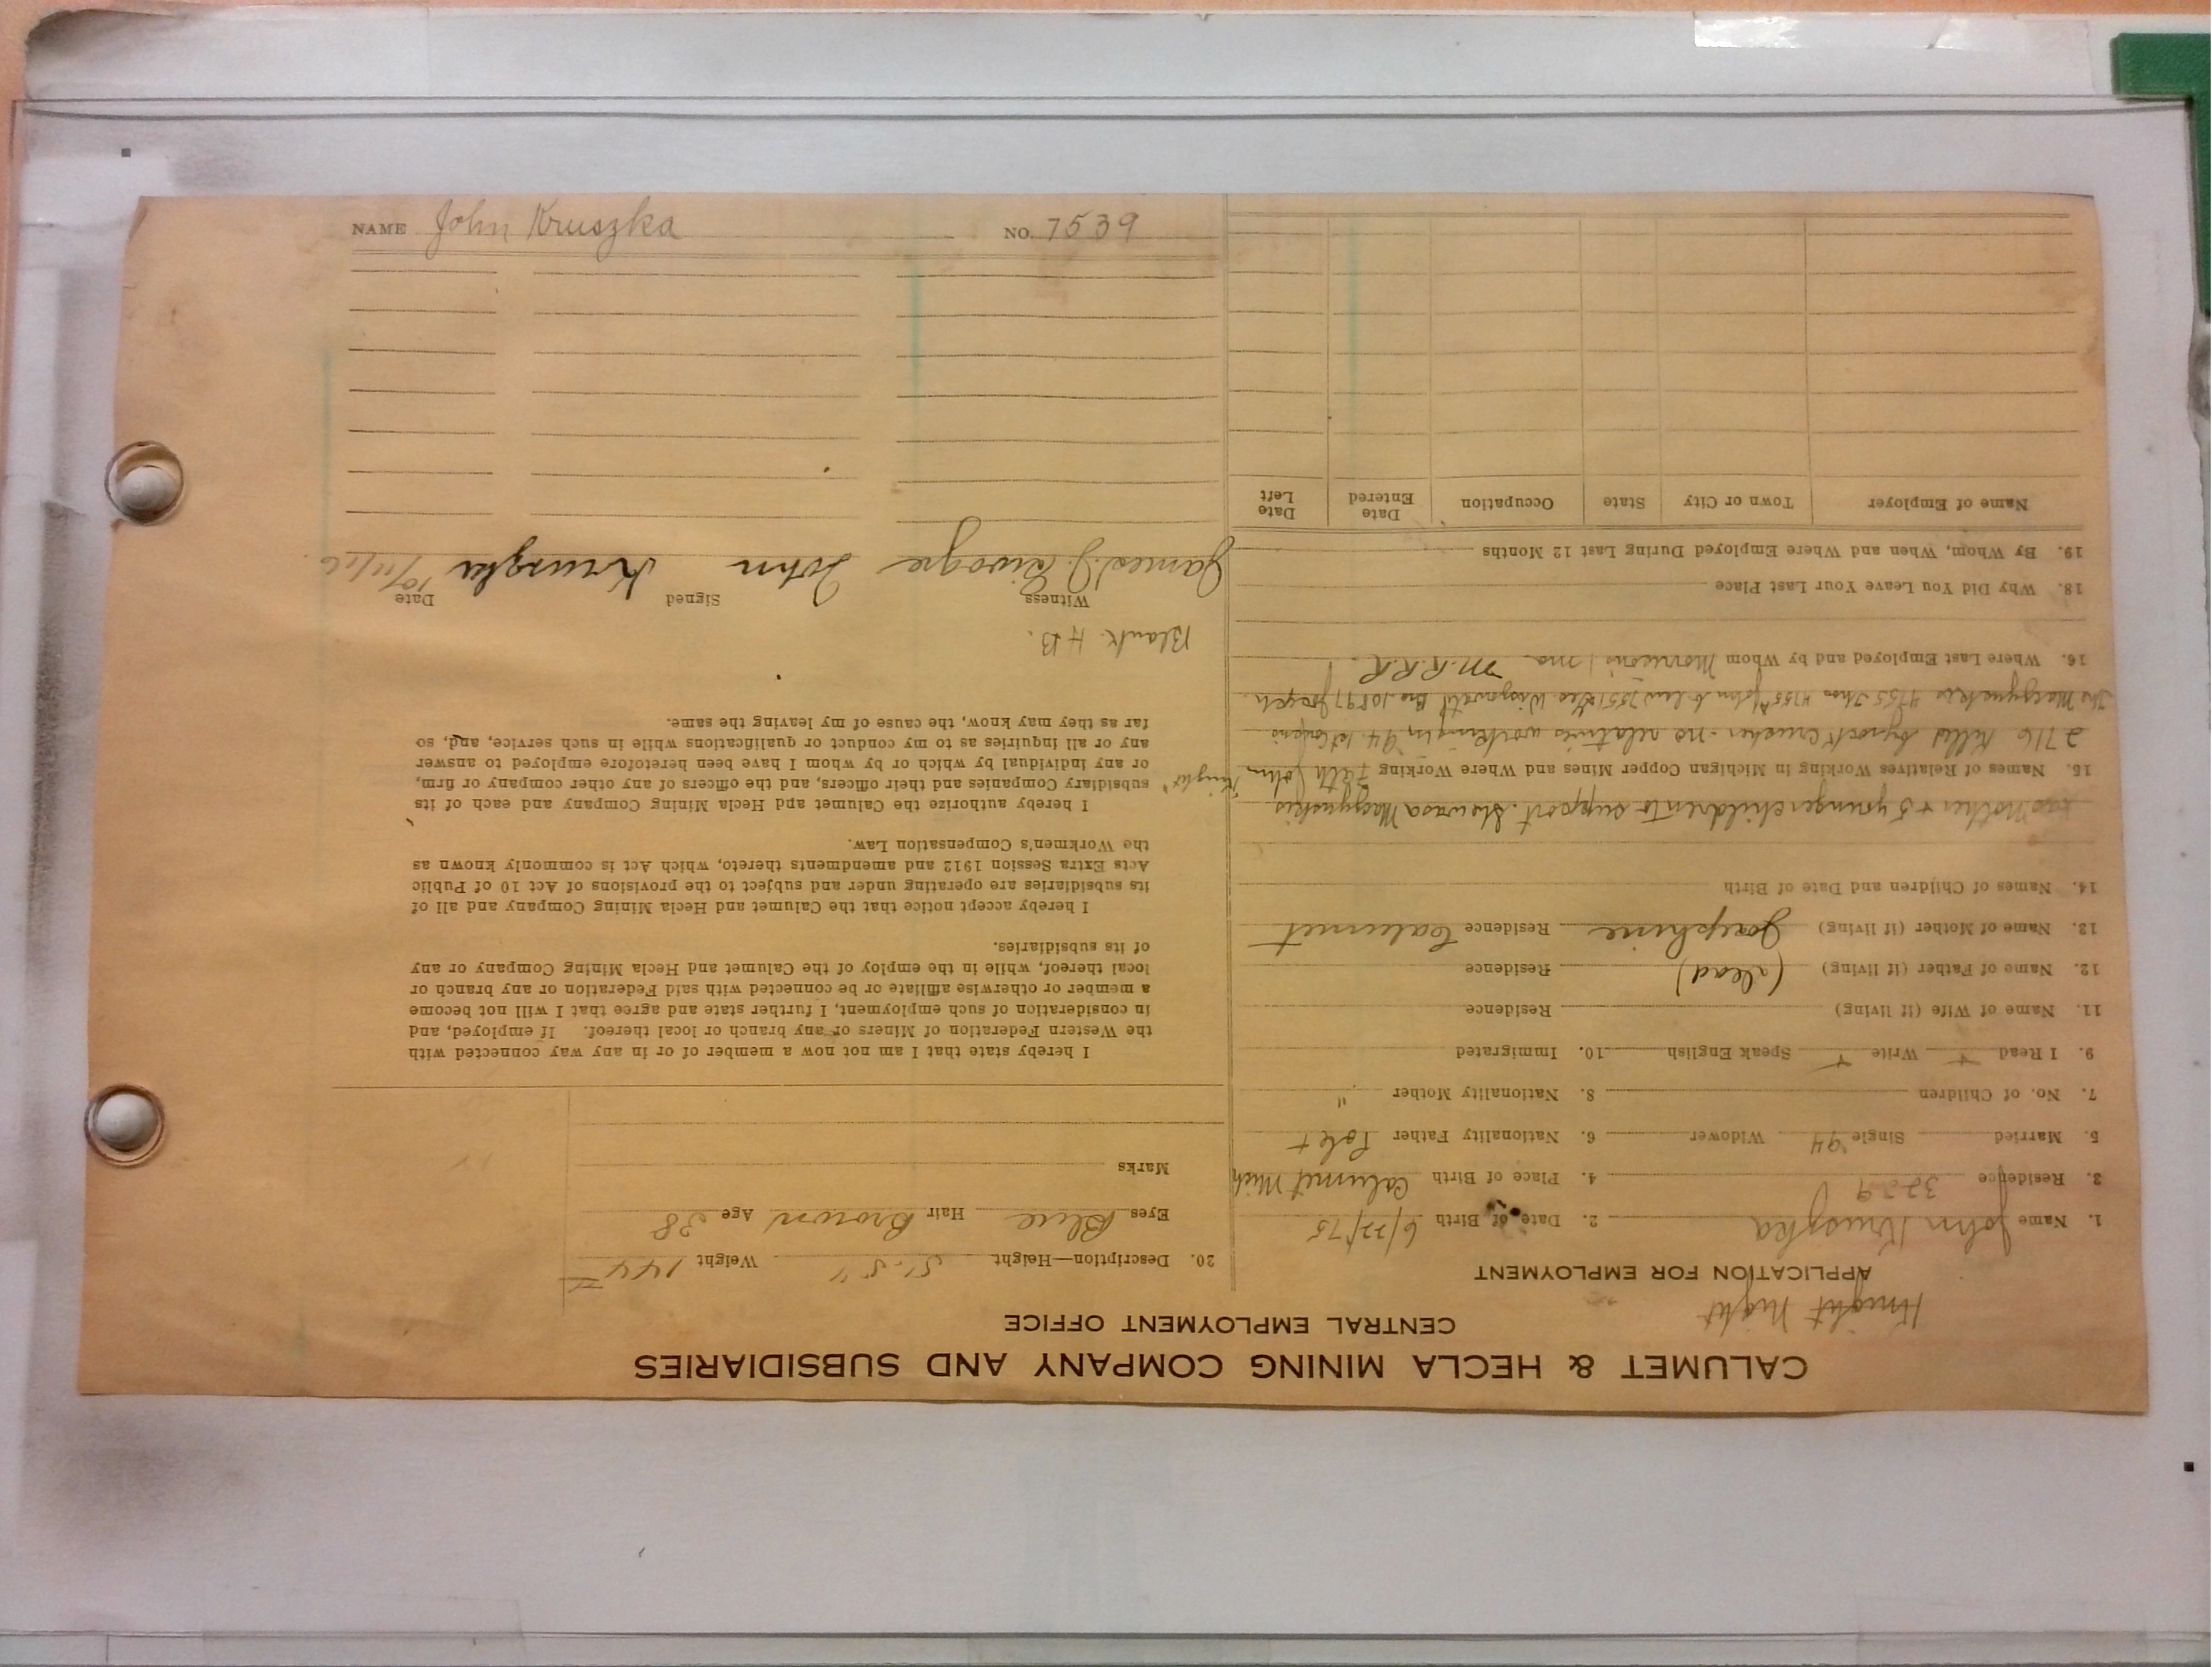 CALUMET & HECLA MINING COMPANY AND SUBSIDIARIES
CENTRAL EMPLOYMENT OFFICE
Knight Night
APPLICATION FOR EMPLOYMENT
1. Name John Kruszka 2. Date of Birth 6/22/75
3. Residence 3229 4. Place of Birth Calumet Mich
5. Married Single 94 Widower 6. Nationality Father Pole +
7. No. of Children 8. Nationality Mother "
9. I Read + Write + Speak English 10. Immigrated
11. Name of Wife (if living) Residence
12. Name of Father (if living) (dead) Residence
13. Name of Mother (if living) Josephine Residence Calumet
14. Names of Children and Date of Birth
Mother & 5 younger children to support.
15. Names of Relatives Working in Michigan Copper Mines and Where Working Fath John "Knight"
2716 killed by rock crusher - no relatives working in 94
4755 John 4755
16. Where Last Employed and by Whom M.R.R.R.
18. Why Did You Leave Your Last Place
19. By Whom, When and Where Employed During Last 12 Months
Name of Employer Town or City State Occupation Date Entered Date Left
20. Description—Height 5'-5" Weight 144
Eyes Blue Hair Brown Age 38
Marks
I hereby state that I am not now a member of or in any way connected with
the Western Federation of Miners or any branch or local thereof. If employed, and
in consideration of such employment, I further state and agree that I will not become
a member or otherwise affiliate or be connected with said Federation or any branch or
local thereof, while in the employ of the Calumet and Hecla Mining Company or any
of its subsidiaries.
I hereby accept notice that the Calumet and Hecla Mining Company and all of
its subsidiaries are operating under and subject to the provisions of Act 10 of Public
Acts Extra Session 1912 and amendments thereto, which Act is commonly known as
the Workmen's Compensation Law.
I hereby authorize the Calumet and Hecla Mining Company and each of its
subsidiary Companies and their officers, and the officers of any other company or firm,
or any individual by which or by whom I have been heretofore employed to answer
any or all inquiries as to my conduct or qualifications while in such service, and, so
far as they may know, the cause of my leaving the same.
Blank H B.
Witness Signed Date
James J. John Kruszka
NAME John Kruszka NO. 7539